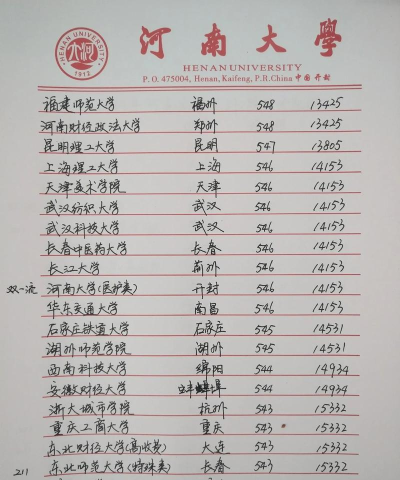 HENAN UNIVERSITY
1912
河南大學
HENAN UNIVERSITY
P. O. 475004, Henan, Kaifeng, P.R.China 中国 开封
福建师范大学 福州 548 13425
河南财经政法大学 郑州 548 13425
昆明理工大学 昆明 547 13805
上海理工大学 上海 546 14153
天津美术学院 天津 546 14153
武汉纺织大学 武汉 546 14153
武汉科技大学 武汉 546 14153
长春中医药大学 长春 546 14153
长江大学 荆州 546 14153
双一流 河南大学(医护类) 开封 546 14153
华东交通大学 南昌 546 14153
石家庄铁道大学 石家庄 545 14531
湖州师范学院 湖州 545 14531
西南科技大学 绵阳 544 14934
安徽财经大学 蚌埠 544 14934
浙大城市学院 杭州 543 15332
重庆工商大学 重庆 543 15332
东北财经大学(高收费) 大连 543 15332
211 东北师范大学(特殊类) 长春 543 15332